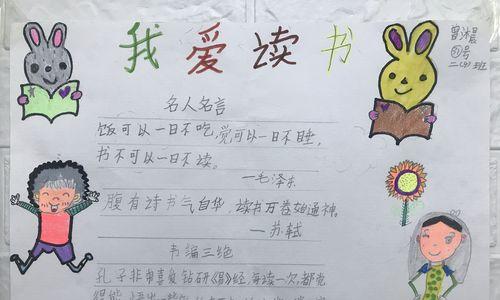 我爱读书
曾沐晨
21号
二(8)班
名人名言
饭可以一日不吃,觉可以一日不睡,
书不可以一日不读。
—毛泽东
腹有诗书气自华,读书万卷始通神。
—苏轼
韦编三绝
孔子非常喜爱钻研《易》经,每读一次,都觉